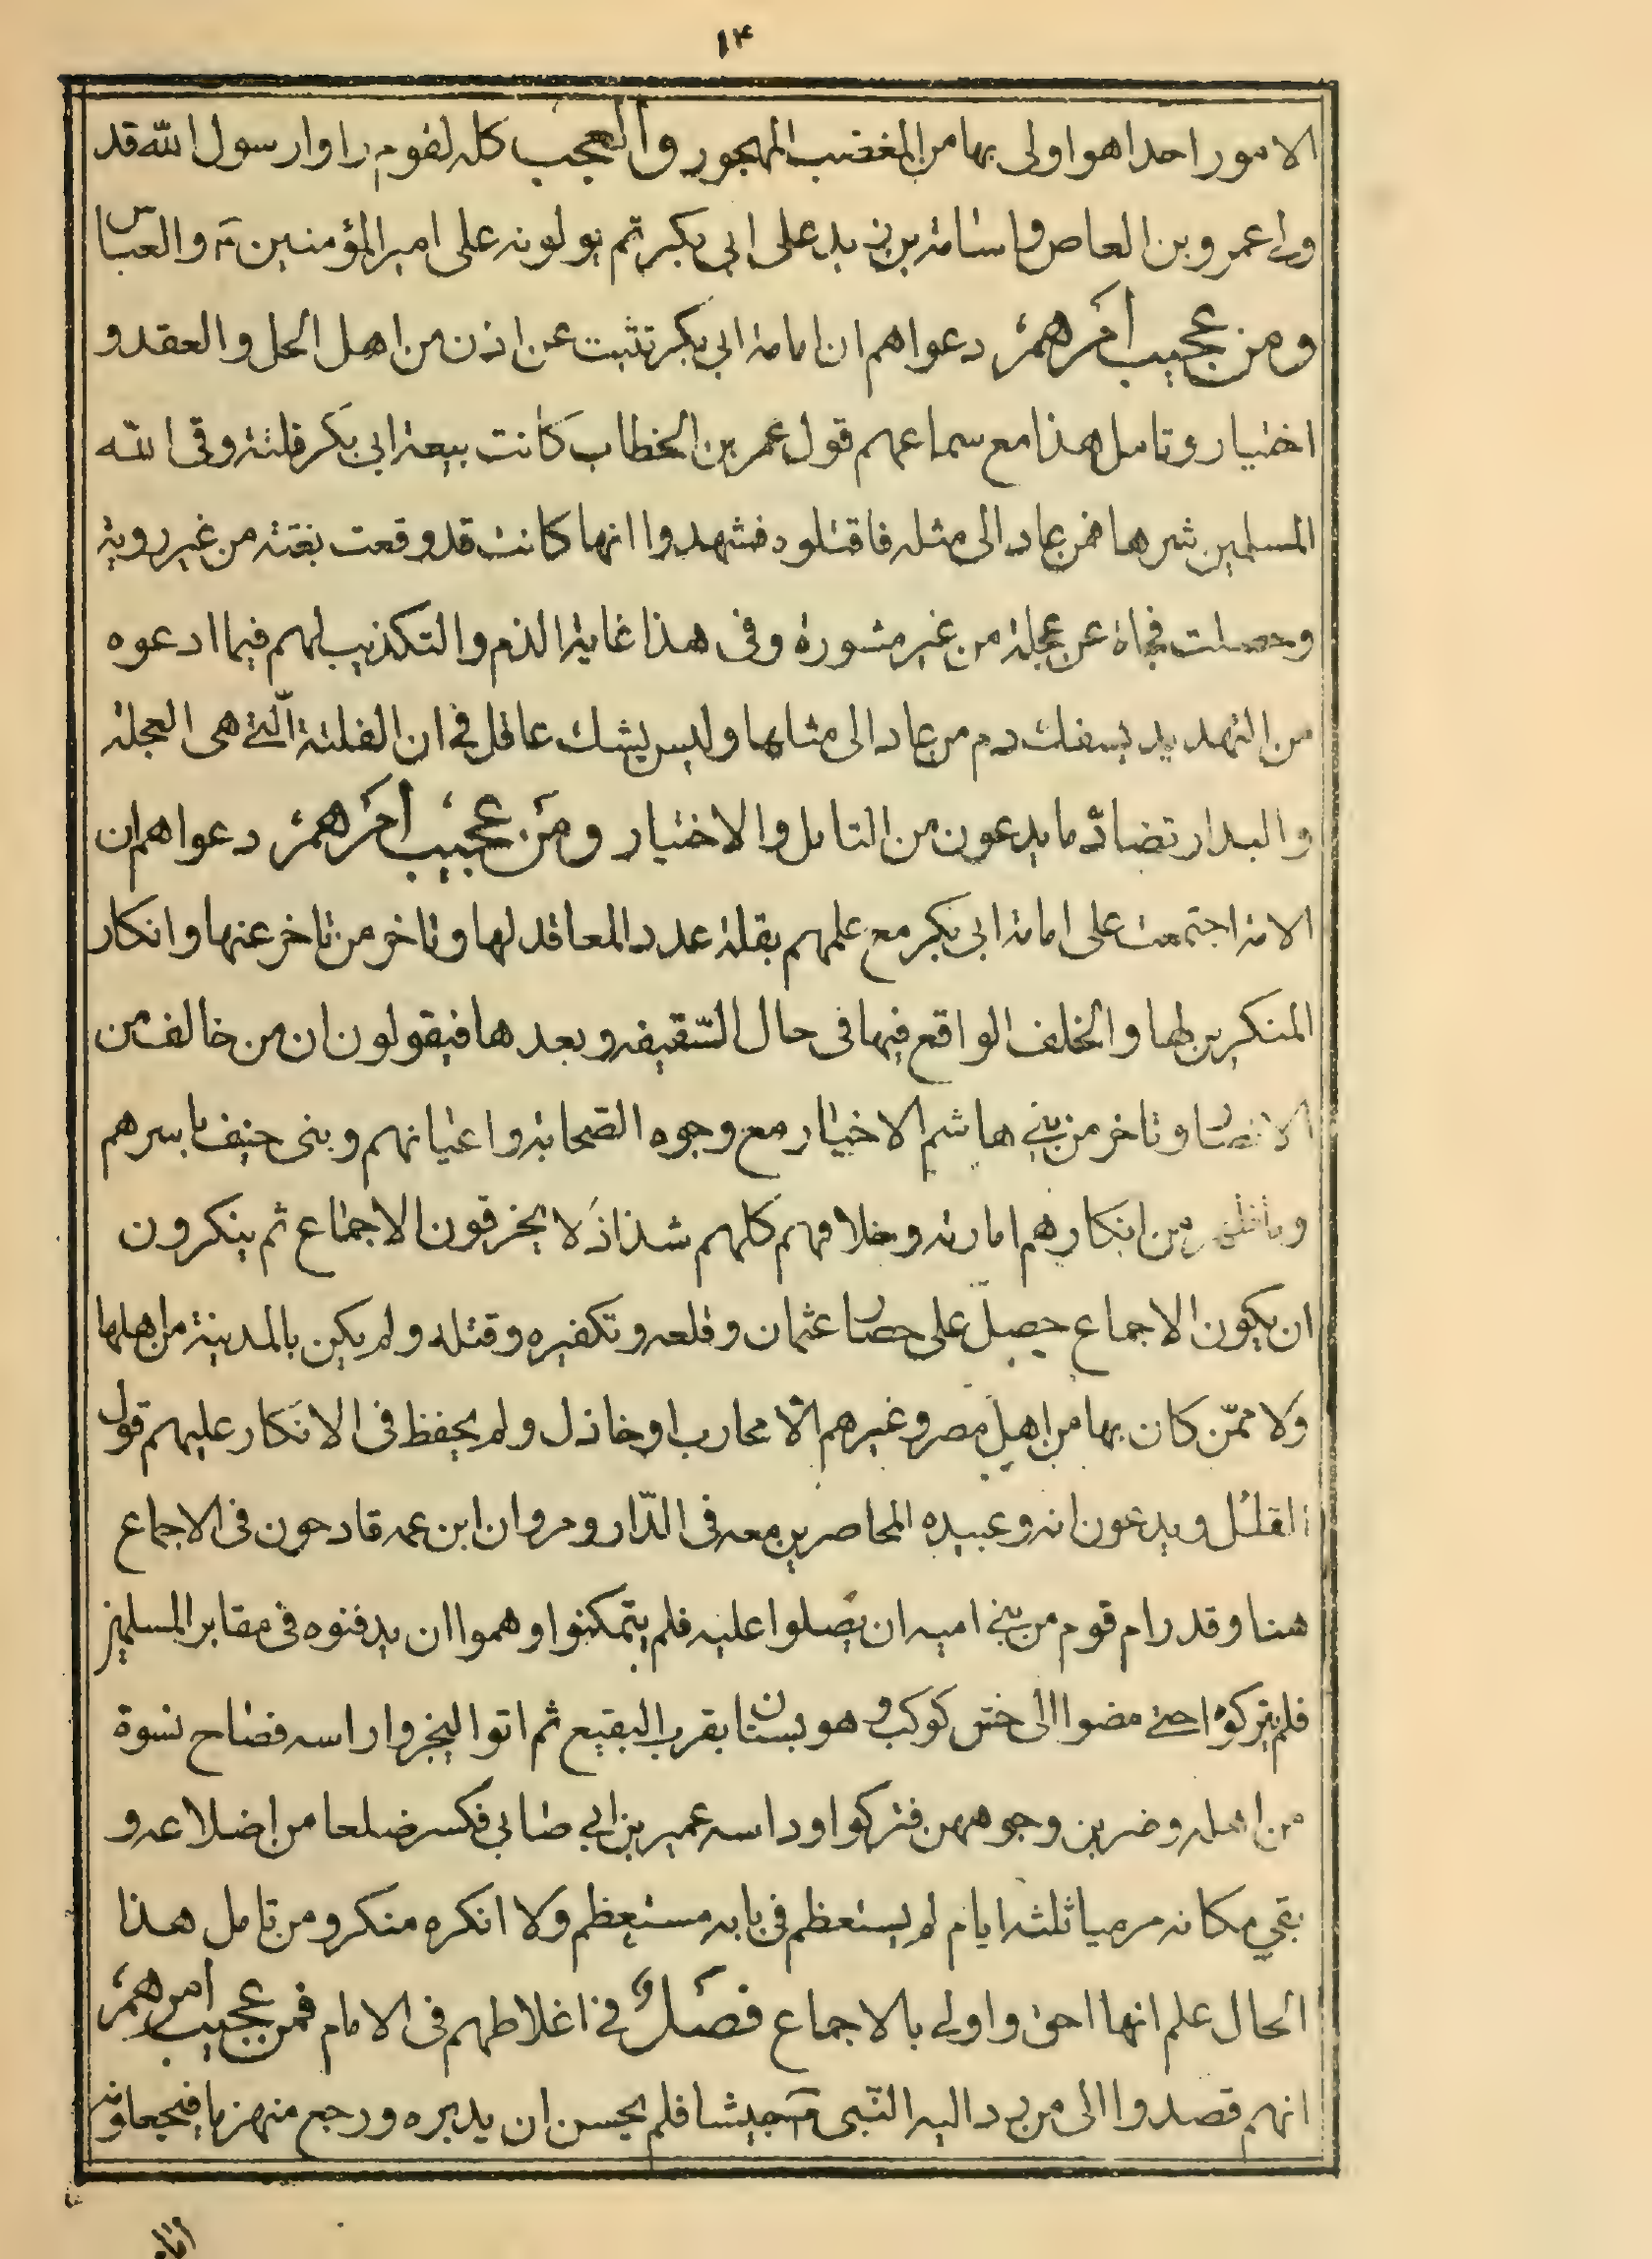 ١٤
الامور احدا هو اولى بها من المغضب المهجور والعجب كله لقوم راوا رسول الله قد
ولى عمرو بن العاص واسامة بن زيد على ابى بكر ثم يولونه على امير المؤمنين ع والعباس
ومن عجيب امرهم دعواهم ان امامة ابى بكر تثبت عن اذن من اهل الحل والعقد و
اختيار وتامل هذا مع سماعهم قول عمر بن الخطاب كانت بيعة ابى بكر فلتة وقى الله
المسلمين شرها فمن عاد الى مثله فاقتلوه فشهدوا انها كانت قد وقعت بغتة من غير روية
وحصلت فجاة عن عجلة من غير مشورة وفى هذا غاية الذم والتكذيب لهم فيما ادعوه
من التهديد بسفك دم من عاد الى مثلها وليس يشك عاقل فى ان الفلتة الّتى هى العجلة
والبدار تضادّ ما يدعون من التامل والاختيار ومن عجيب امرهم دعواهم ان
الامة اجتمعت على امامة ابى بكر مع علمهم بقلة عدد المعاقد لها وتاخر من تاخر عنها وانكار
المنكرين لها والخلف الواقع فيها فى حال السّقيفه وبعدها فيقولون ان من خالف من
الانصار وتاخر من بنى هاشم الاخيار مع وجوه الصّحابة واعيانهم وبنى حنيف باسرهم
وما ظهر من انكارهم امارته وخلافهم كلهم شذاذ لا يخرقون الاجماع ثم ينكرون
ان يكون الاجماع حصل على حصار عثمان وخلعه وتكفيره وقتله ولم يكن بالمدينة من اهلها
ولا ممّن كان بها من اهل مصر وغيرهم الّا محارب او خاذل ولم يحفظ فى الانكار عليهم قول
القليل ويدعون انه وعبيده المحاصرين معه فى الدّار ومروان ابن عمه قادحون فى الاجماع
هنا وقد رام قوم من بنى اميه ان يصلوا عليه فلم يتمكنوا وهموا ان يدفنوه فى مقابر المسلمين
فلم يتركوا حتى مضوا الى حش كوكب وهو بستان بقرب البقيع ثم اتوا ليجزوا راسه فصاح نسوة
من اهله وضربن وجوههن فتركوا وداسه عمير بن ابى ضابى فكسر ضلعا من اضلاعه و
بقي مكانه مرميا ثلثه ايام لم يستعظم فى بابه مستعظم ولا انكره منكر ومن تامل هذا
الحال علم انها احق واولى بالاجماع فصل فى اغلاطهم فى الامام فمن عجيب امرهم
انهم قصدوا الى من ير د اليه النّبى ص جيشا فلم يحسن ان يدبره ورجع منهزما فيجعلونه